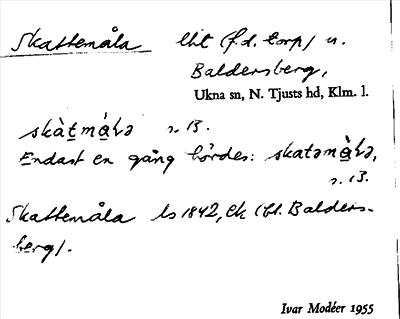 Skattemåla lht (f.d. torp) u.
Baldersberg,
Ukna sn, N. Tjusts hd, Klm. l.
skàt̲må̲̀ɫə s. B.
Endast en gång hördes: skatəmå̲̀ɫə,
s. B.
Skattemåla ls 1842, Ek (bl. Balders-
berg).
Ivar Modéer 1955